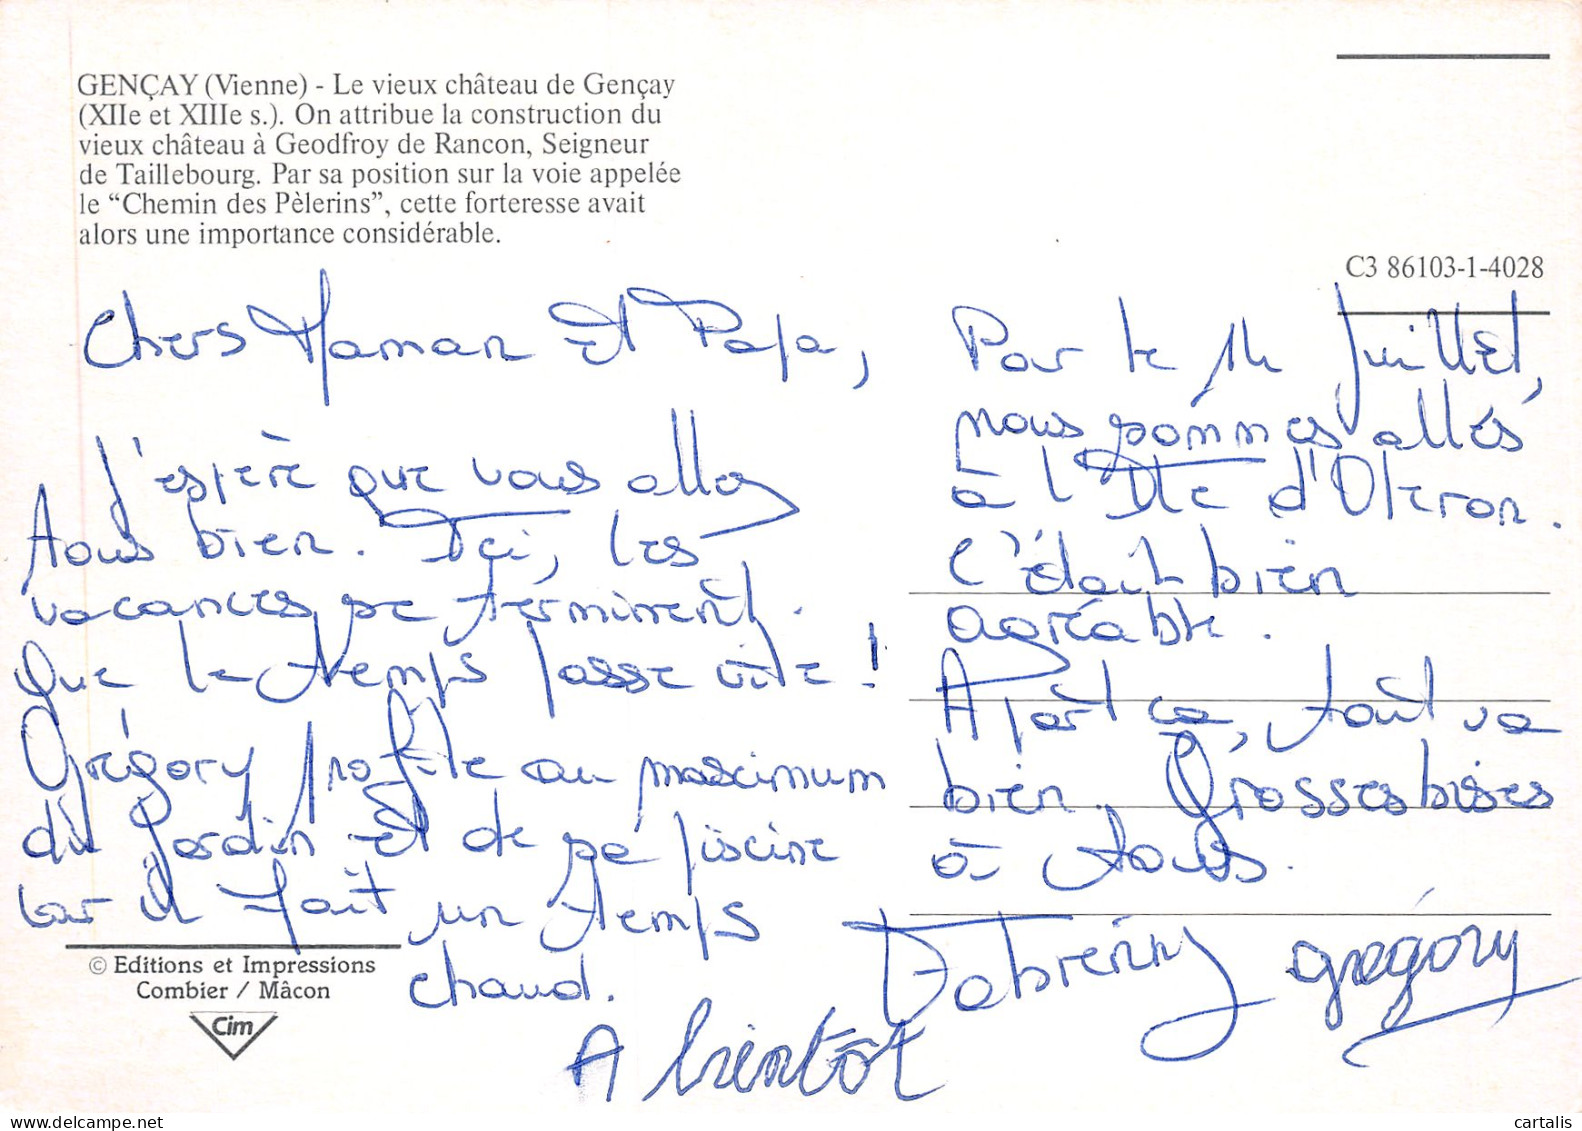 GENÇAY (Vienne) - Le vieux château de Gençay
(XIIe et XIIIe s.). On attribue la construction du
vieux château à Geodfroy de Rancon, Seigneur
de Taillebourg. Par sa position sur la voie appelée
le “Chemin des Pèlerins”, cette forteresse avait
alors une importance considérable.
C3 86103-1-4028
Chers Maman et Papa,
J'espère que vous allez
tous bien. Ici, les
vacances se terminent.
Que le temps passe vite !
Grégory profite au maximum
du jardin et de sa piscine
car il fait un temps
chaud.
Pour le 14 Juillet,
nous sommes allés
à l'Ile d'Oleron.
C'était bien
agréable.
A part ça, tout va
bien. Grosses bises
à tous.
Grégory
A bientôt
© Editions et Impressions
Combier / Mâcon
Cim
cartalis